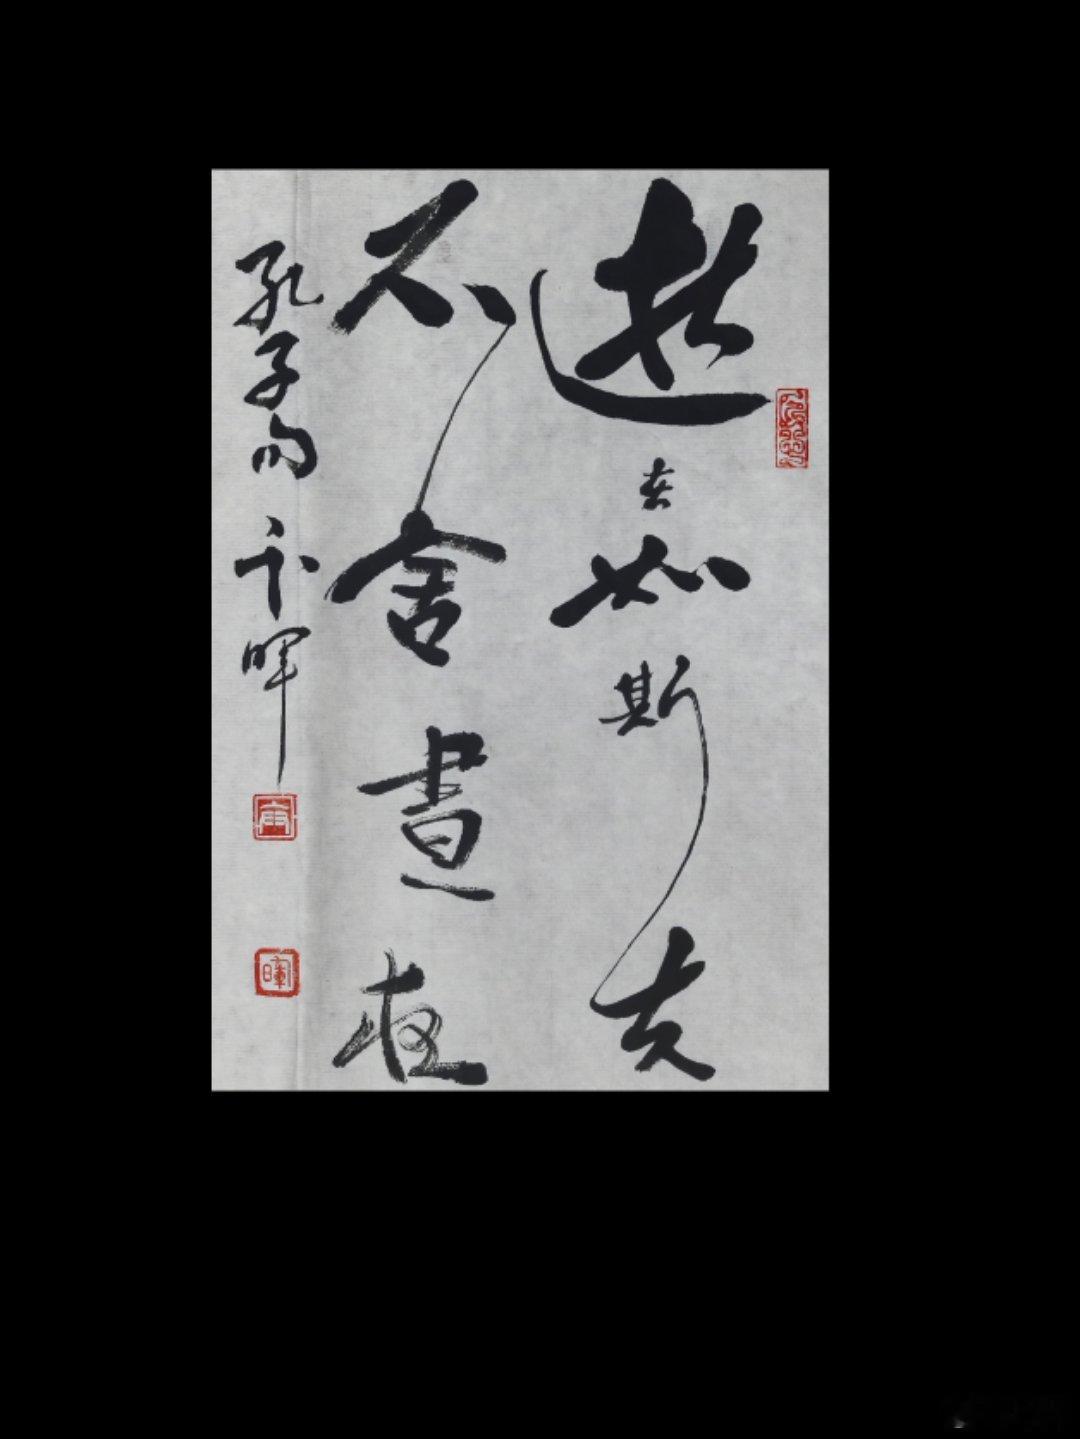 逝者如斯夫
不舍晝夜
孔子句 卞暉
暉